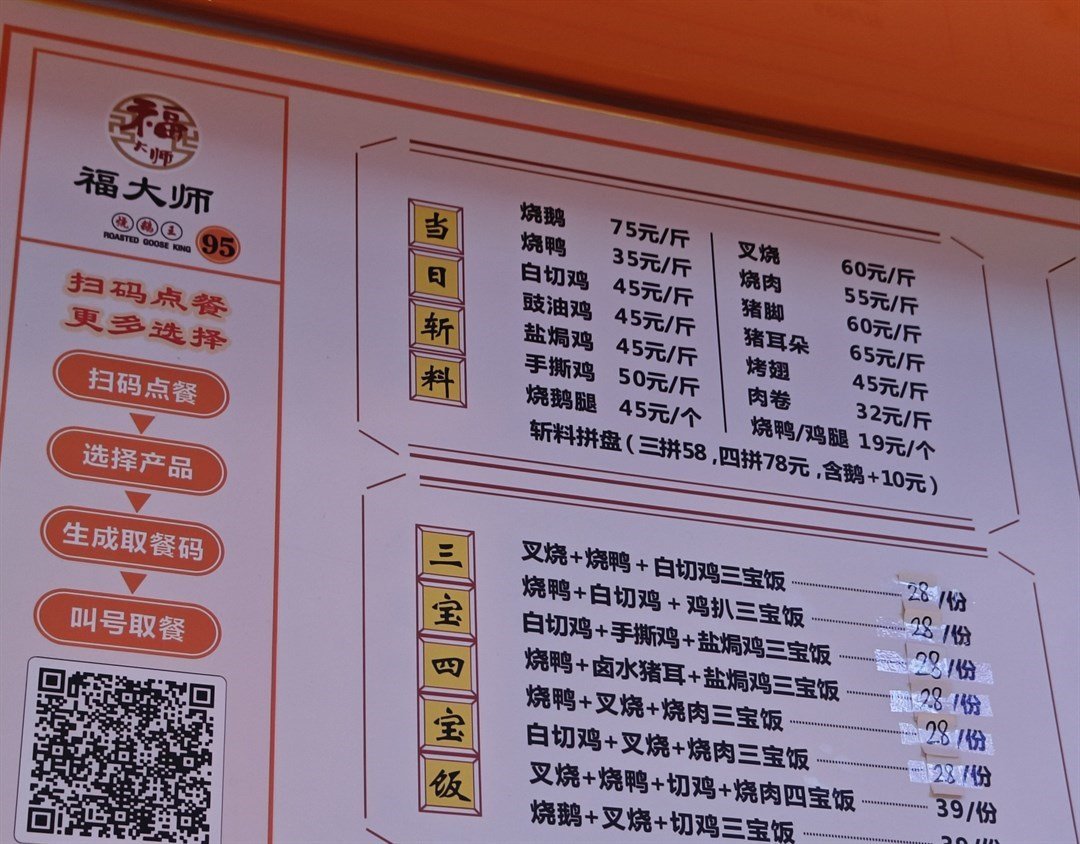 福
大师
福大师
烧鹅王
ROASTED GOOSE KING
95
扫码点餐
更多选择
扫码点餐
选择产品
生成取餐码
叫号取餐
当日斩料
烧鹅 75元/斤
烧鸭 35元/斤
白切鸡 45元/斤
豉油鸡 45元/斤
盐焗鸡 45元/斤
手撕鸡 50元/斤
烧鹅腿 45元/个
叉烧 60元/斤
烧肉 55元/斤
猪脚 60元/斤
猪耳朵 65元/斤
烤翅 45元/斤
肉卷 32元/斤
烧鸭/鸡腿 19元/个
斩料拼盘(三拼58,四拼78元,含鹅+10元)
三宝四宝饭
叉烧+烧鸭+白切鸡三宝饭 28/份
烧鸭+白切鸡+鸡扒三宝饭 28/份
白切鸡+手撕鸡+盐焗鸡三宝饭 28/份
烧鸭+卤水猪耳+盐焗鸡三宝饭 28/份
烧鸭+叉烧+烧肉三宝饭 28/份
白切鸡+叉烧+烧肉三宝饭 28/份
叉烧+烧鸭+切鸡+烧肉四宝饭 39/份
烧鹅+叉烧+切鸡三宝饭